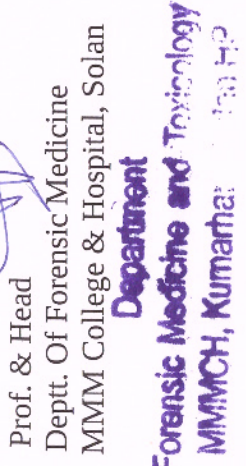 Prof. & Head
Deptt. Of Forensic Medicine
MMM College & Hospital, Solan
Department
Forensic Medicine and Toxicology
MMMCH, Kumarhatti